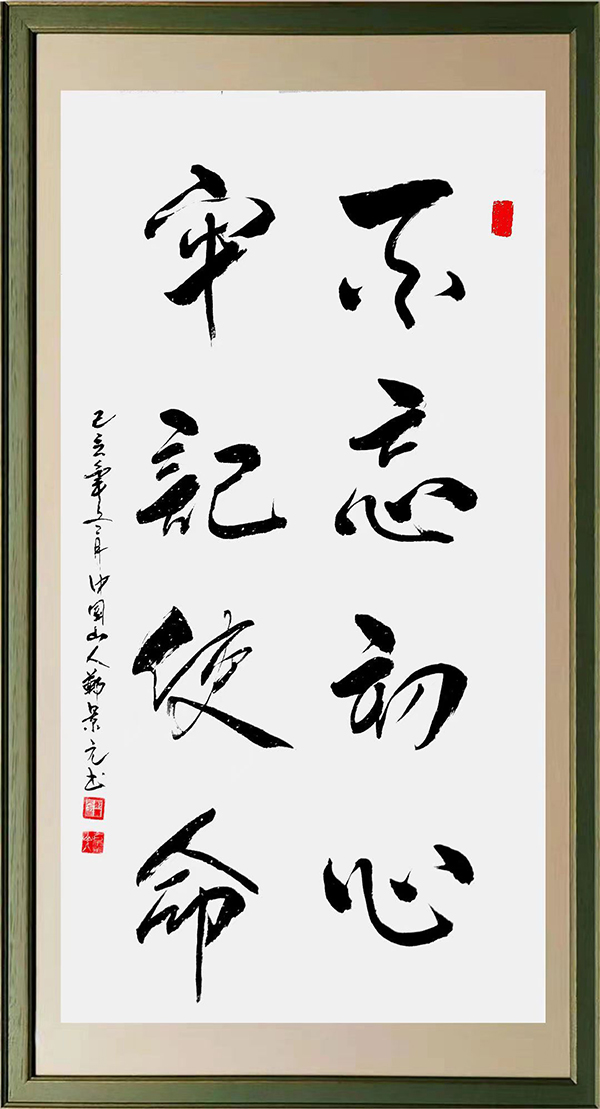 不忘初心
牢記使命
己亥年冬月中国山人景元书